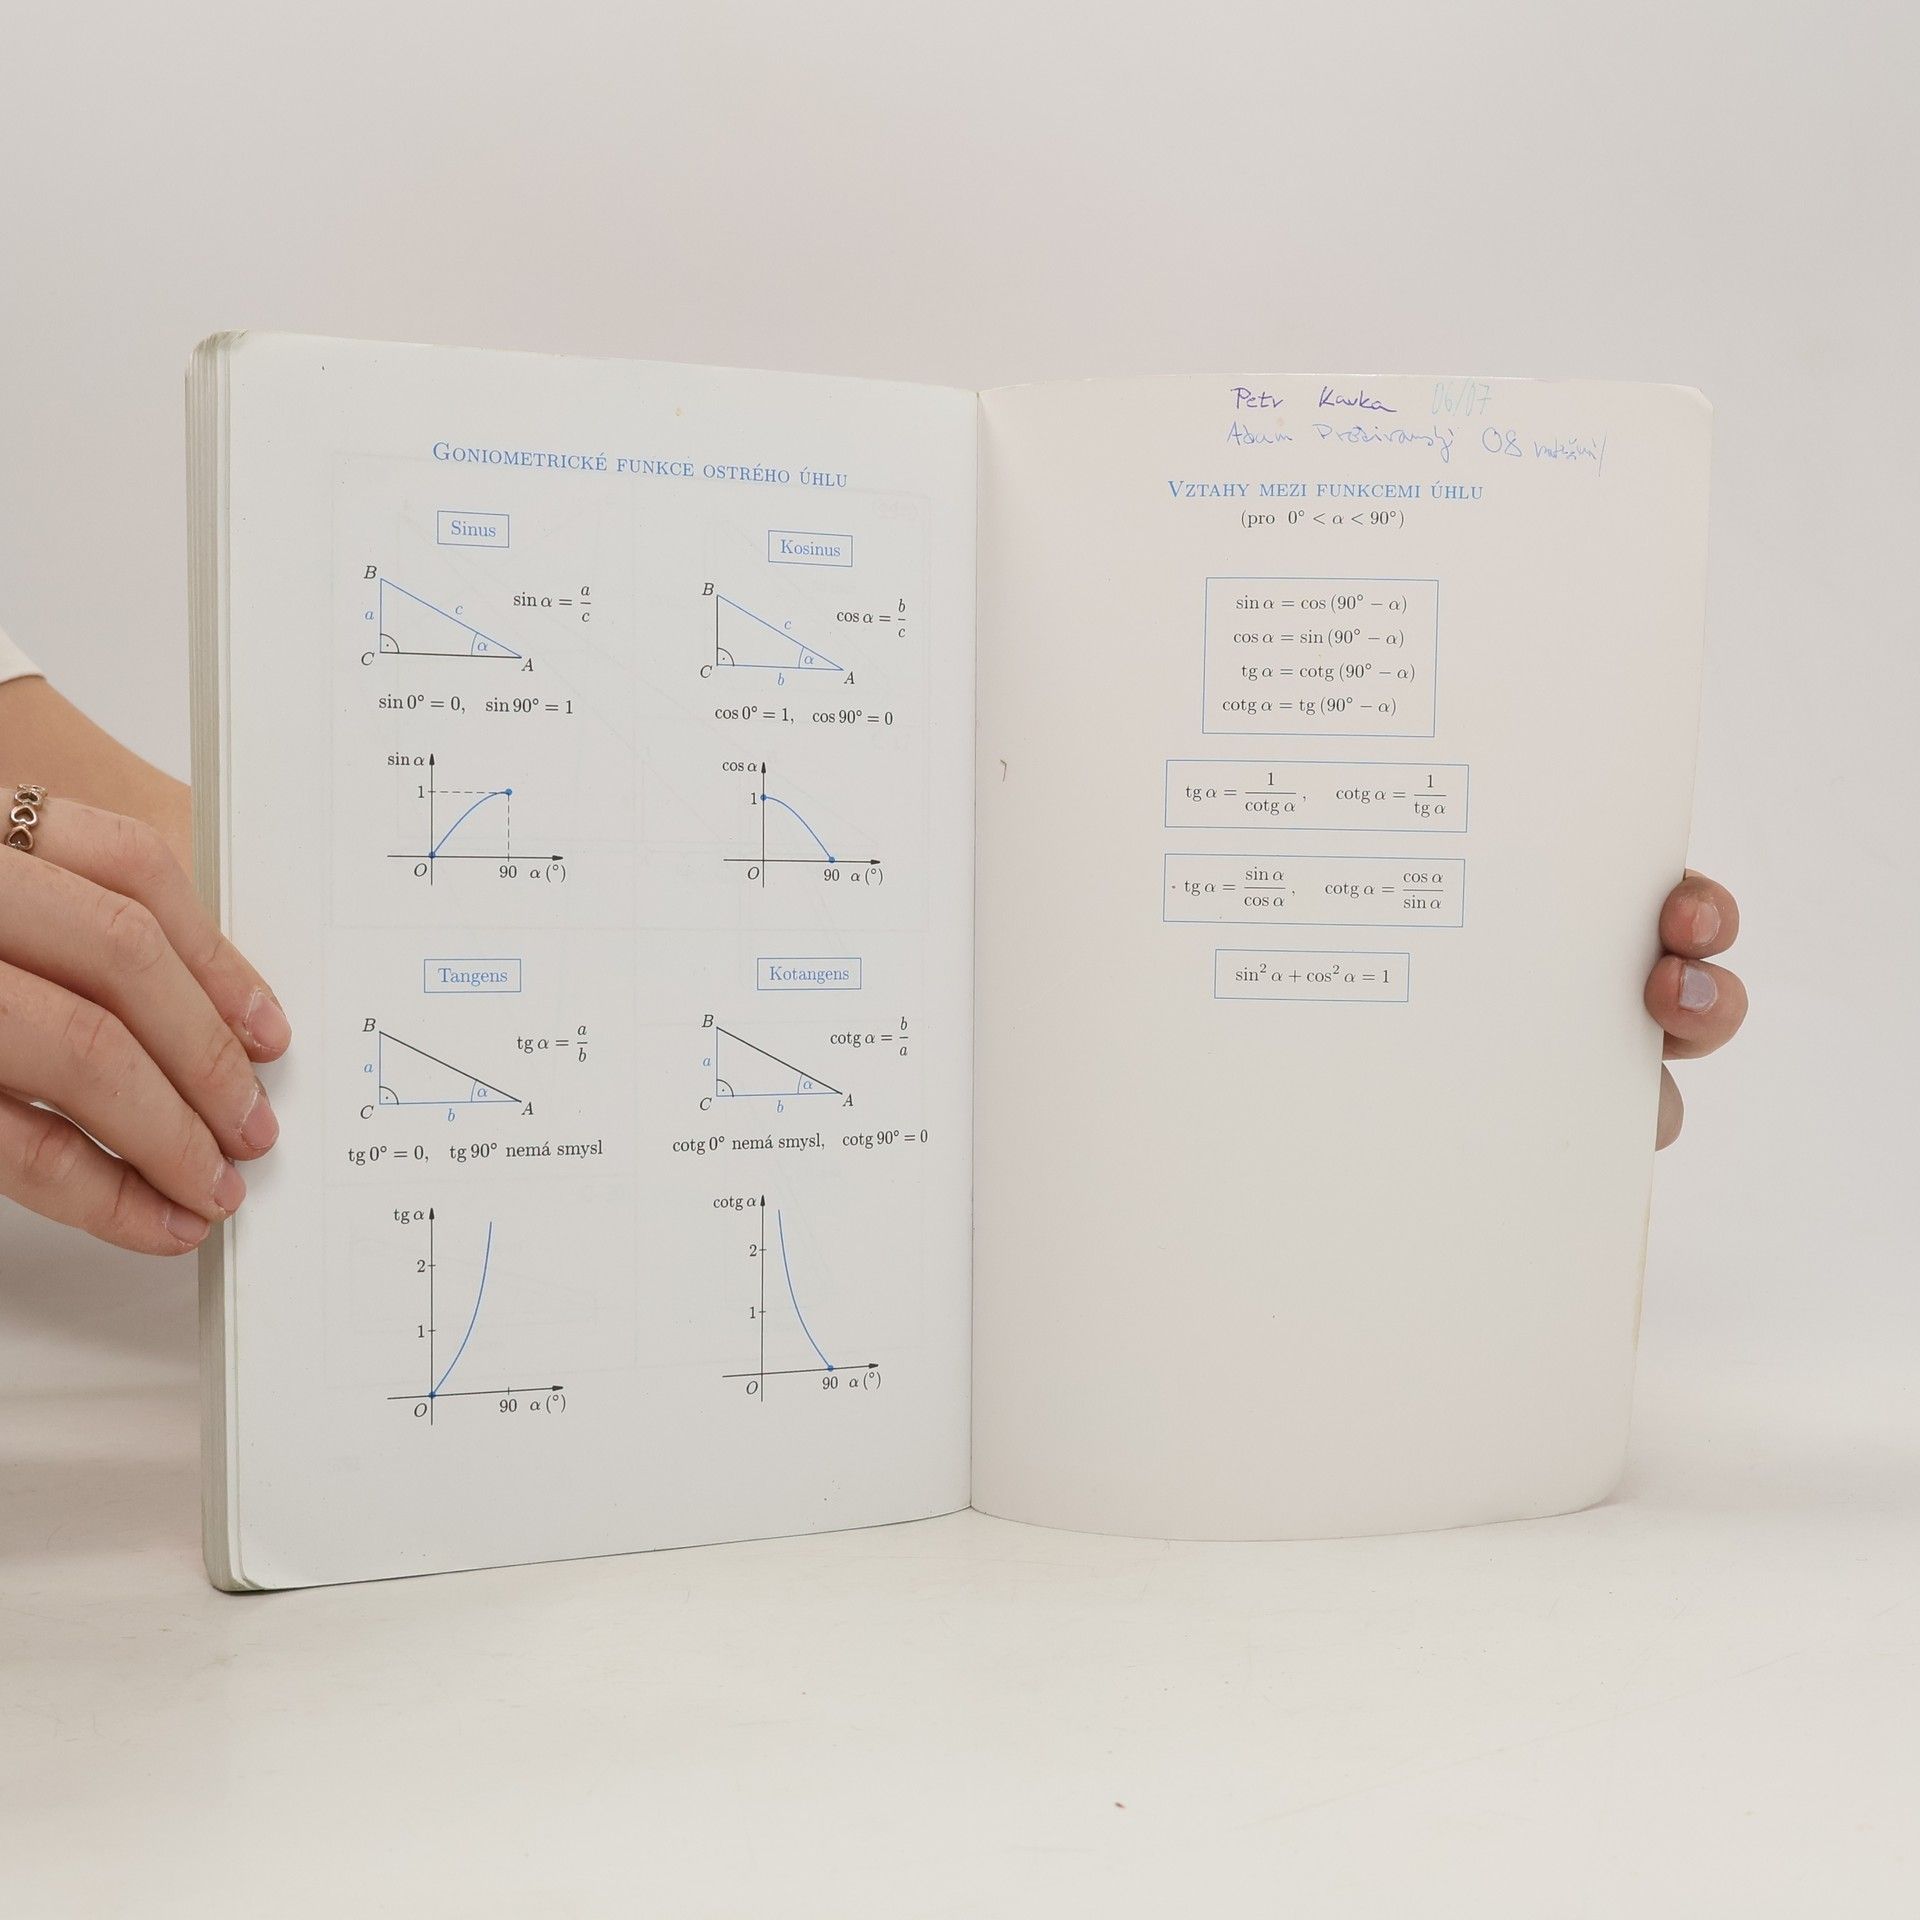 GONIOMETRICKÉ FUNKCE OSTRÉHO ÚHLU
Sinus
B
a
c
α
C
A
sin α = a/c
sin 0° = 0, sin 90° = 1
sin α
1
O
90 α (°)
Kosinus
B
c
α
C
b
A
cos α = b/c
cos 0° = 1, cos 90° = 0
cos α
1
O
90 α (°)
Tangens
B
a
α
C
b
A
tg α = a/b
tg 0° = 0, tg 90° nemá smysl
tg α
2
1
O
90 α (°)
Kotangens
B
a
α
C
b
A
cotg α = b/a
cotg 0° nemá smysl, cotg 90° = 0
cotg α
2
1
O
90 α (°)
Petr Kavka 06/07
Adam 08
VZTAHY MEZI FUNKCEMI ÚHLU
(pro 0° < α < 90°)
sin α = cos (90° − α)
cos α = sin (90° − α)
tg α = cotg (90° − α)
cotg α = tg (90° − α)
tg α = 1/cotg α, cotg α = 1/tg α
tg α = sin α/cos α, cotg α = cos α/sin α
sin² α + cos² α = 1